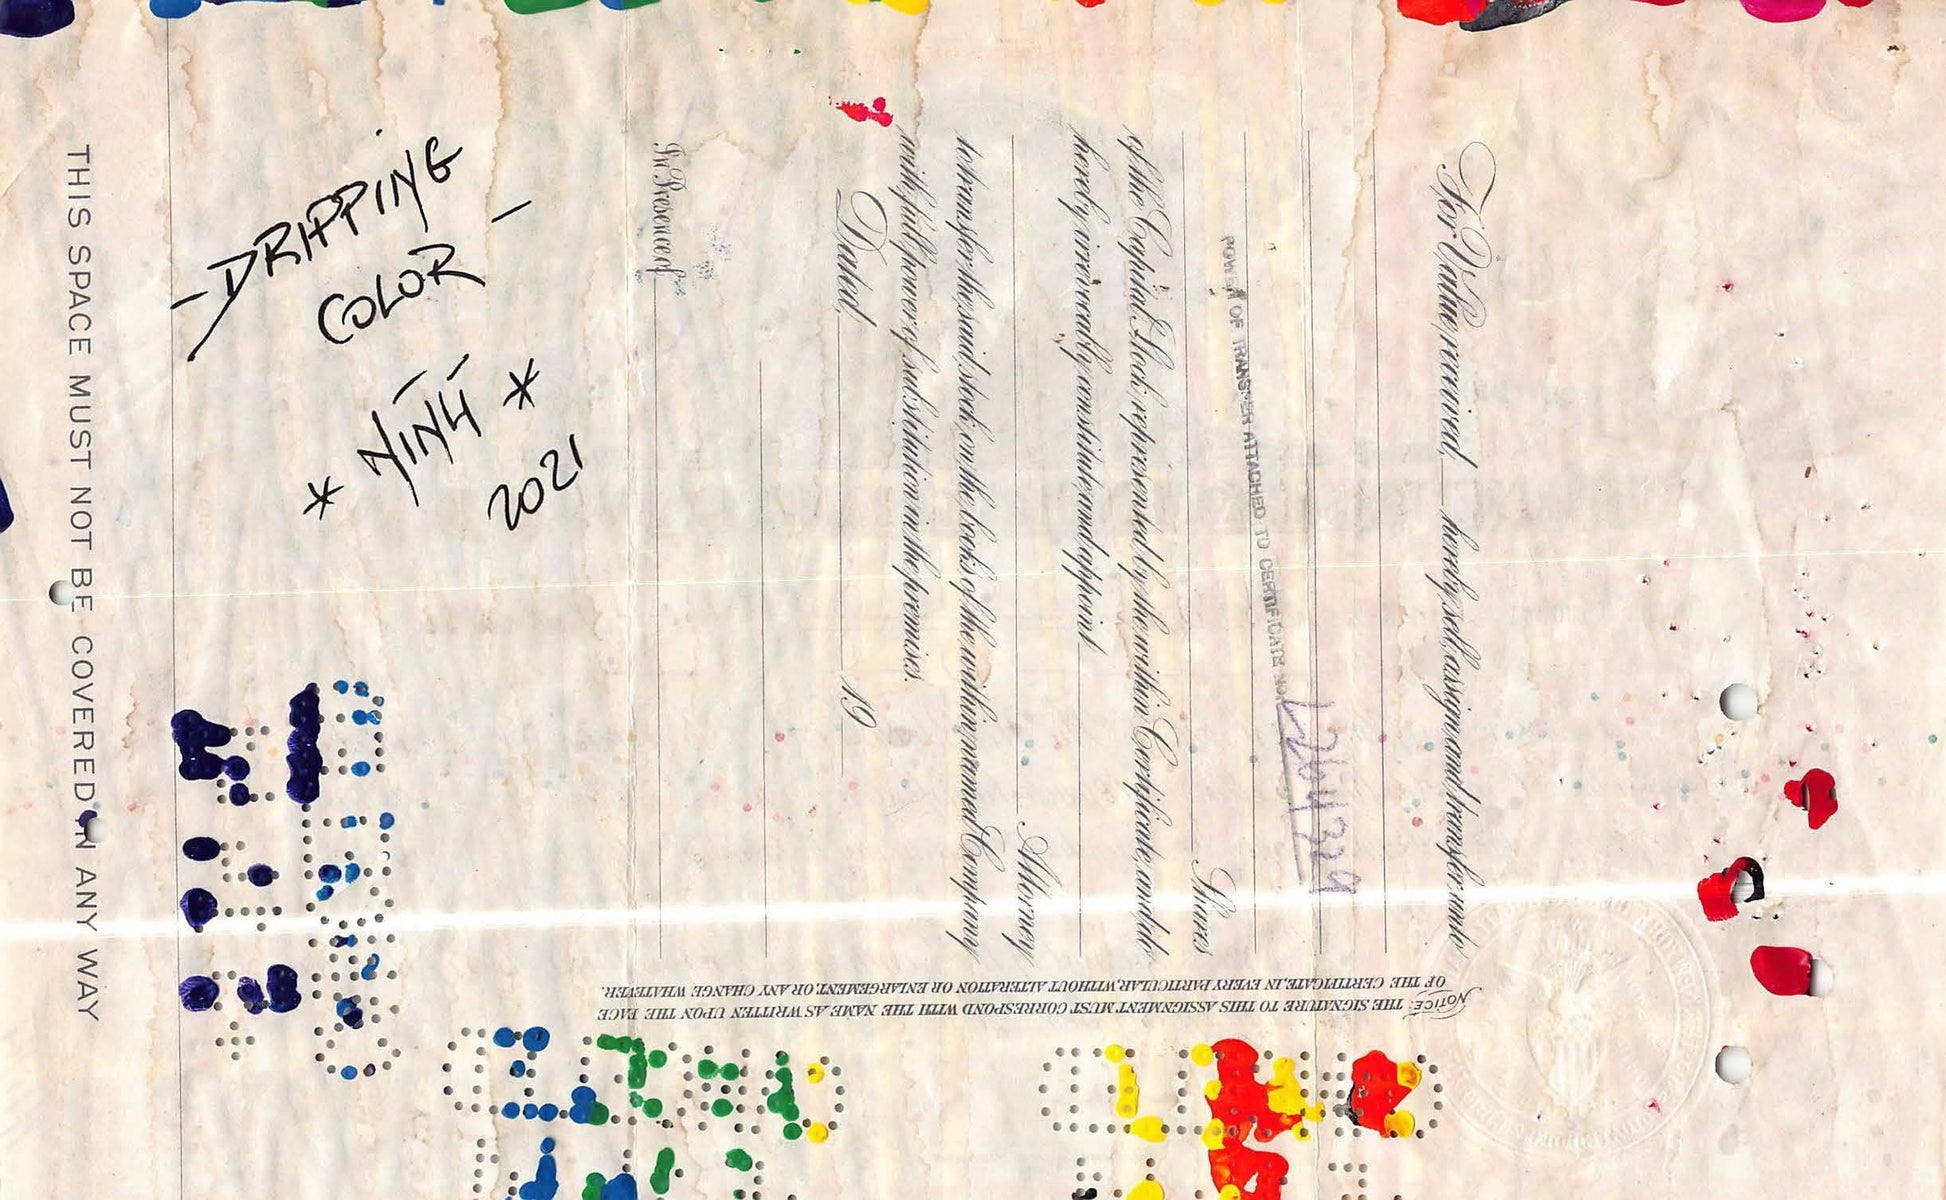 THIS SPACE MUST NOT BE COVERED IN ANY WAY
—DRIPPING
COLOR—
* NINÚ *
2021
For Value received, hereby sell, assign and transfer unto
POWER OF TRANSFER ATTACHED TO CERTIFICATE NO.
L264329
Shares
of the Capital Stock represented by the within Certificate, and do
hereby irrevocably constitute and appoint
Attorney
to transfer the said stock on the books of the within named Company
with full power of substitution in the premises.
Dated, 19
In Presence of
NOTICE: THE SIGNATURE TO THIS ASSIGNMENT MUST CORRESPOND WITH THE NAME AS WRITTEN UPON THE FACE
OF THE CERTIFICATE, IN EVERY PARTICULAR, WITHOUT ALTERATION OR ENLARGEMENT, OR ANY CHANGE WHATEVER.